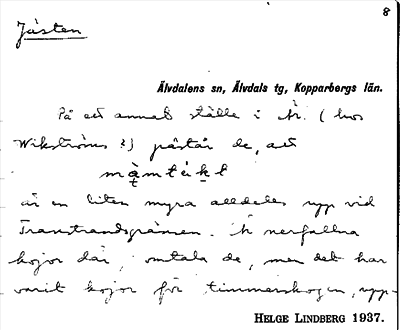 8
Jästen
Älvdalens sn, Älvdals tg, Kopparbergs län.
På ett annat ställe i Å. (hos
Wikströms?) påstår de, att
är en liten myra alldeles upp vid
Transtrandsgränsen. Å nerfallna
kojor där, omtala de, men det har
varit kojor för timmerskogen, upp-
HELGE LINDBERG 1937.